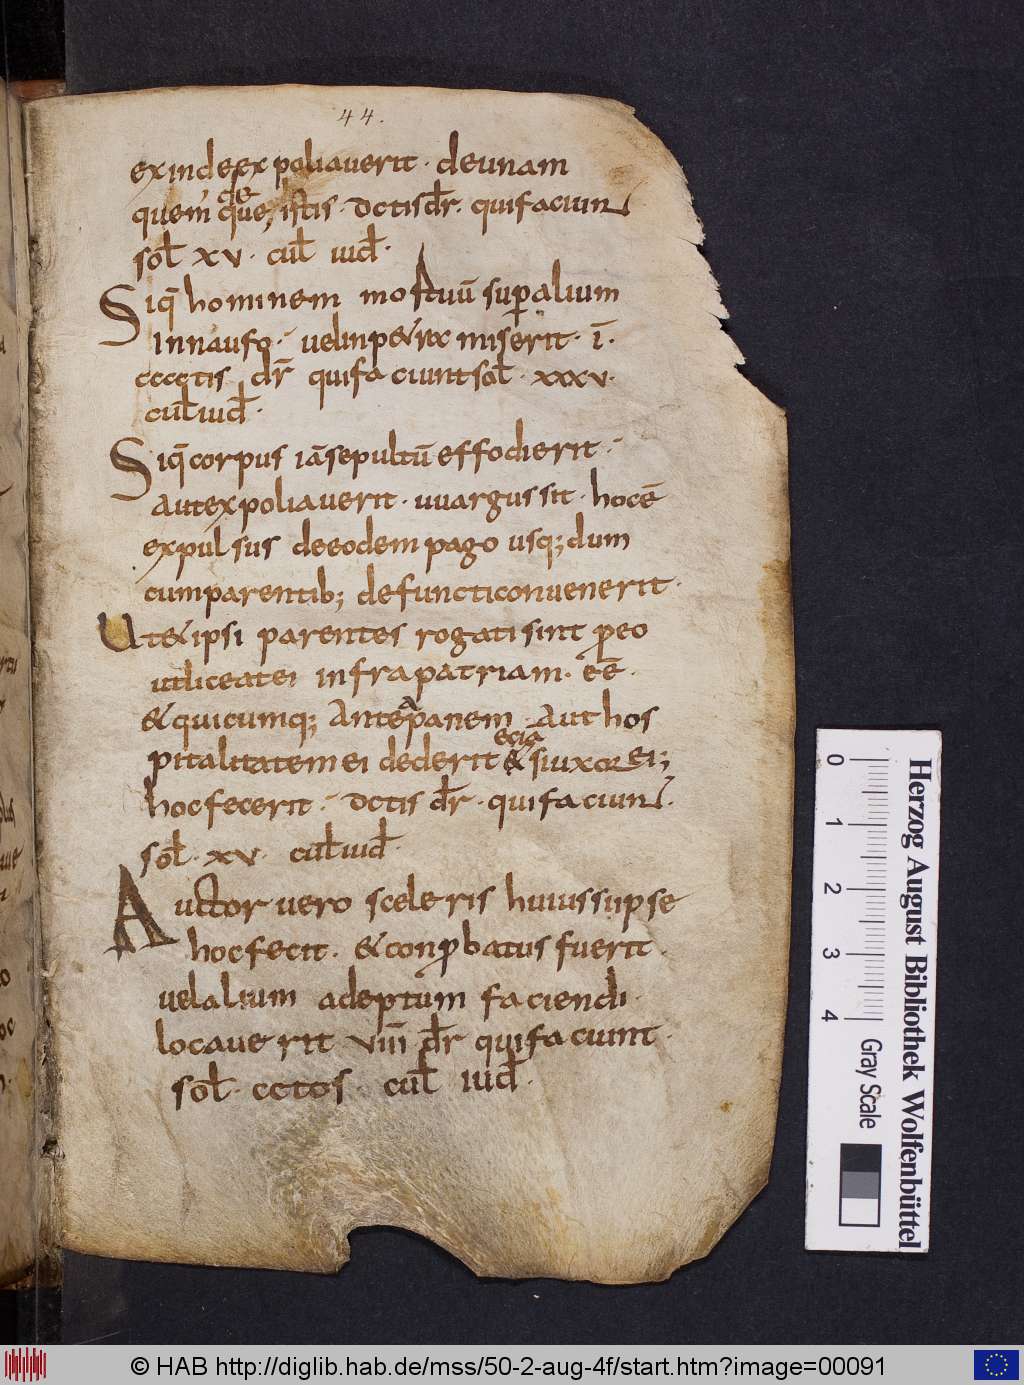 44.
exinde expoliaverit · de una m
quem que, istis · dctis dr̄ · qui faciun̄
de
sol̄ xv · cul̄ iud̄ ·
Siq̄ hominem mortuū sup alium
in naufo · vel in petrix miserit · i ·
cccctis dr̄ qui faciunt sol̄ · xxxv ·
cul̄ iud̄ ·
Siq̄ corpus iā sepultū effodierit ·
aut expoliaverit · uuargus sit · hoc ē
expulsus de eodem pago usq; dum
cum parentib; defuncti convenerit ·
Ut & ipsi parentes rogati sint p eo
ut liceat ei infra patriam · eē ·
& quicumq; Ante a panem · Aut hos
pitalitatem ei dederit & si uxor ei;
ecia
hoc fecerit · dctis dr̄ · qui faciun̄ ·
sol̄ · xv · cul̄ iud̄ ·
Auctor vero sceleris huius si ipse
hoc fecit · & conpbatus fuerit ·
vel alium adeptum faciendi ·
locaverit viiii dr̄ qui faciunt ·
sol̄ · cctos · cul̄ iud̄ ·
Herzog August Bibliothek Wolfenbüttel
0 1 2 3 4 Gray Scale
© HAB http://diglib.hab.de/mss/50-2-aug-4f/start.htm?image=00091